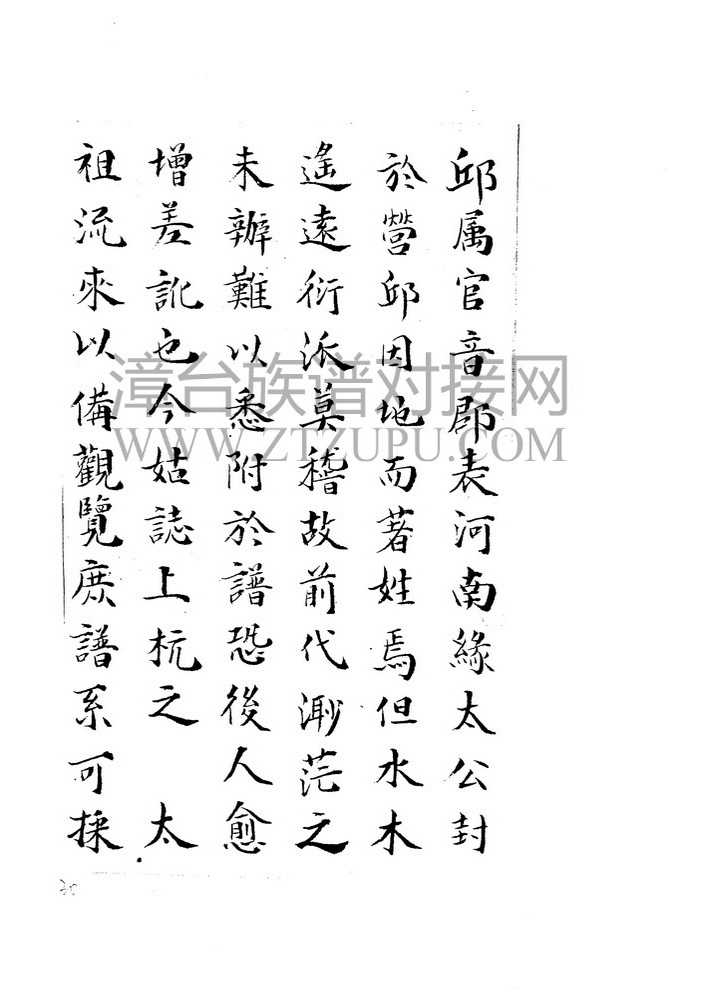 邱属官音郡表河南緣太公封
於營邱因地而著姓焉但水木
遙遠衍派莫稽故前代渺茫之
未辦難以悉附於譜恐後人愈
增差訛也今姑誌上杭之 太
祖流來以備觀覽庶譜系可採
漳台族谱对接网
WWW.ZTZUPU.COM
30